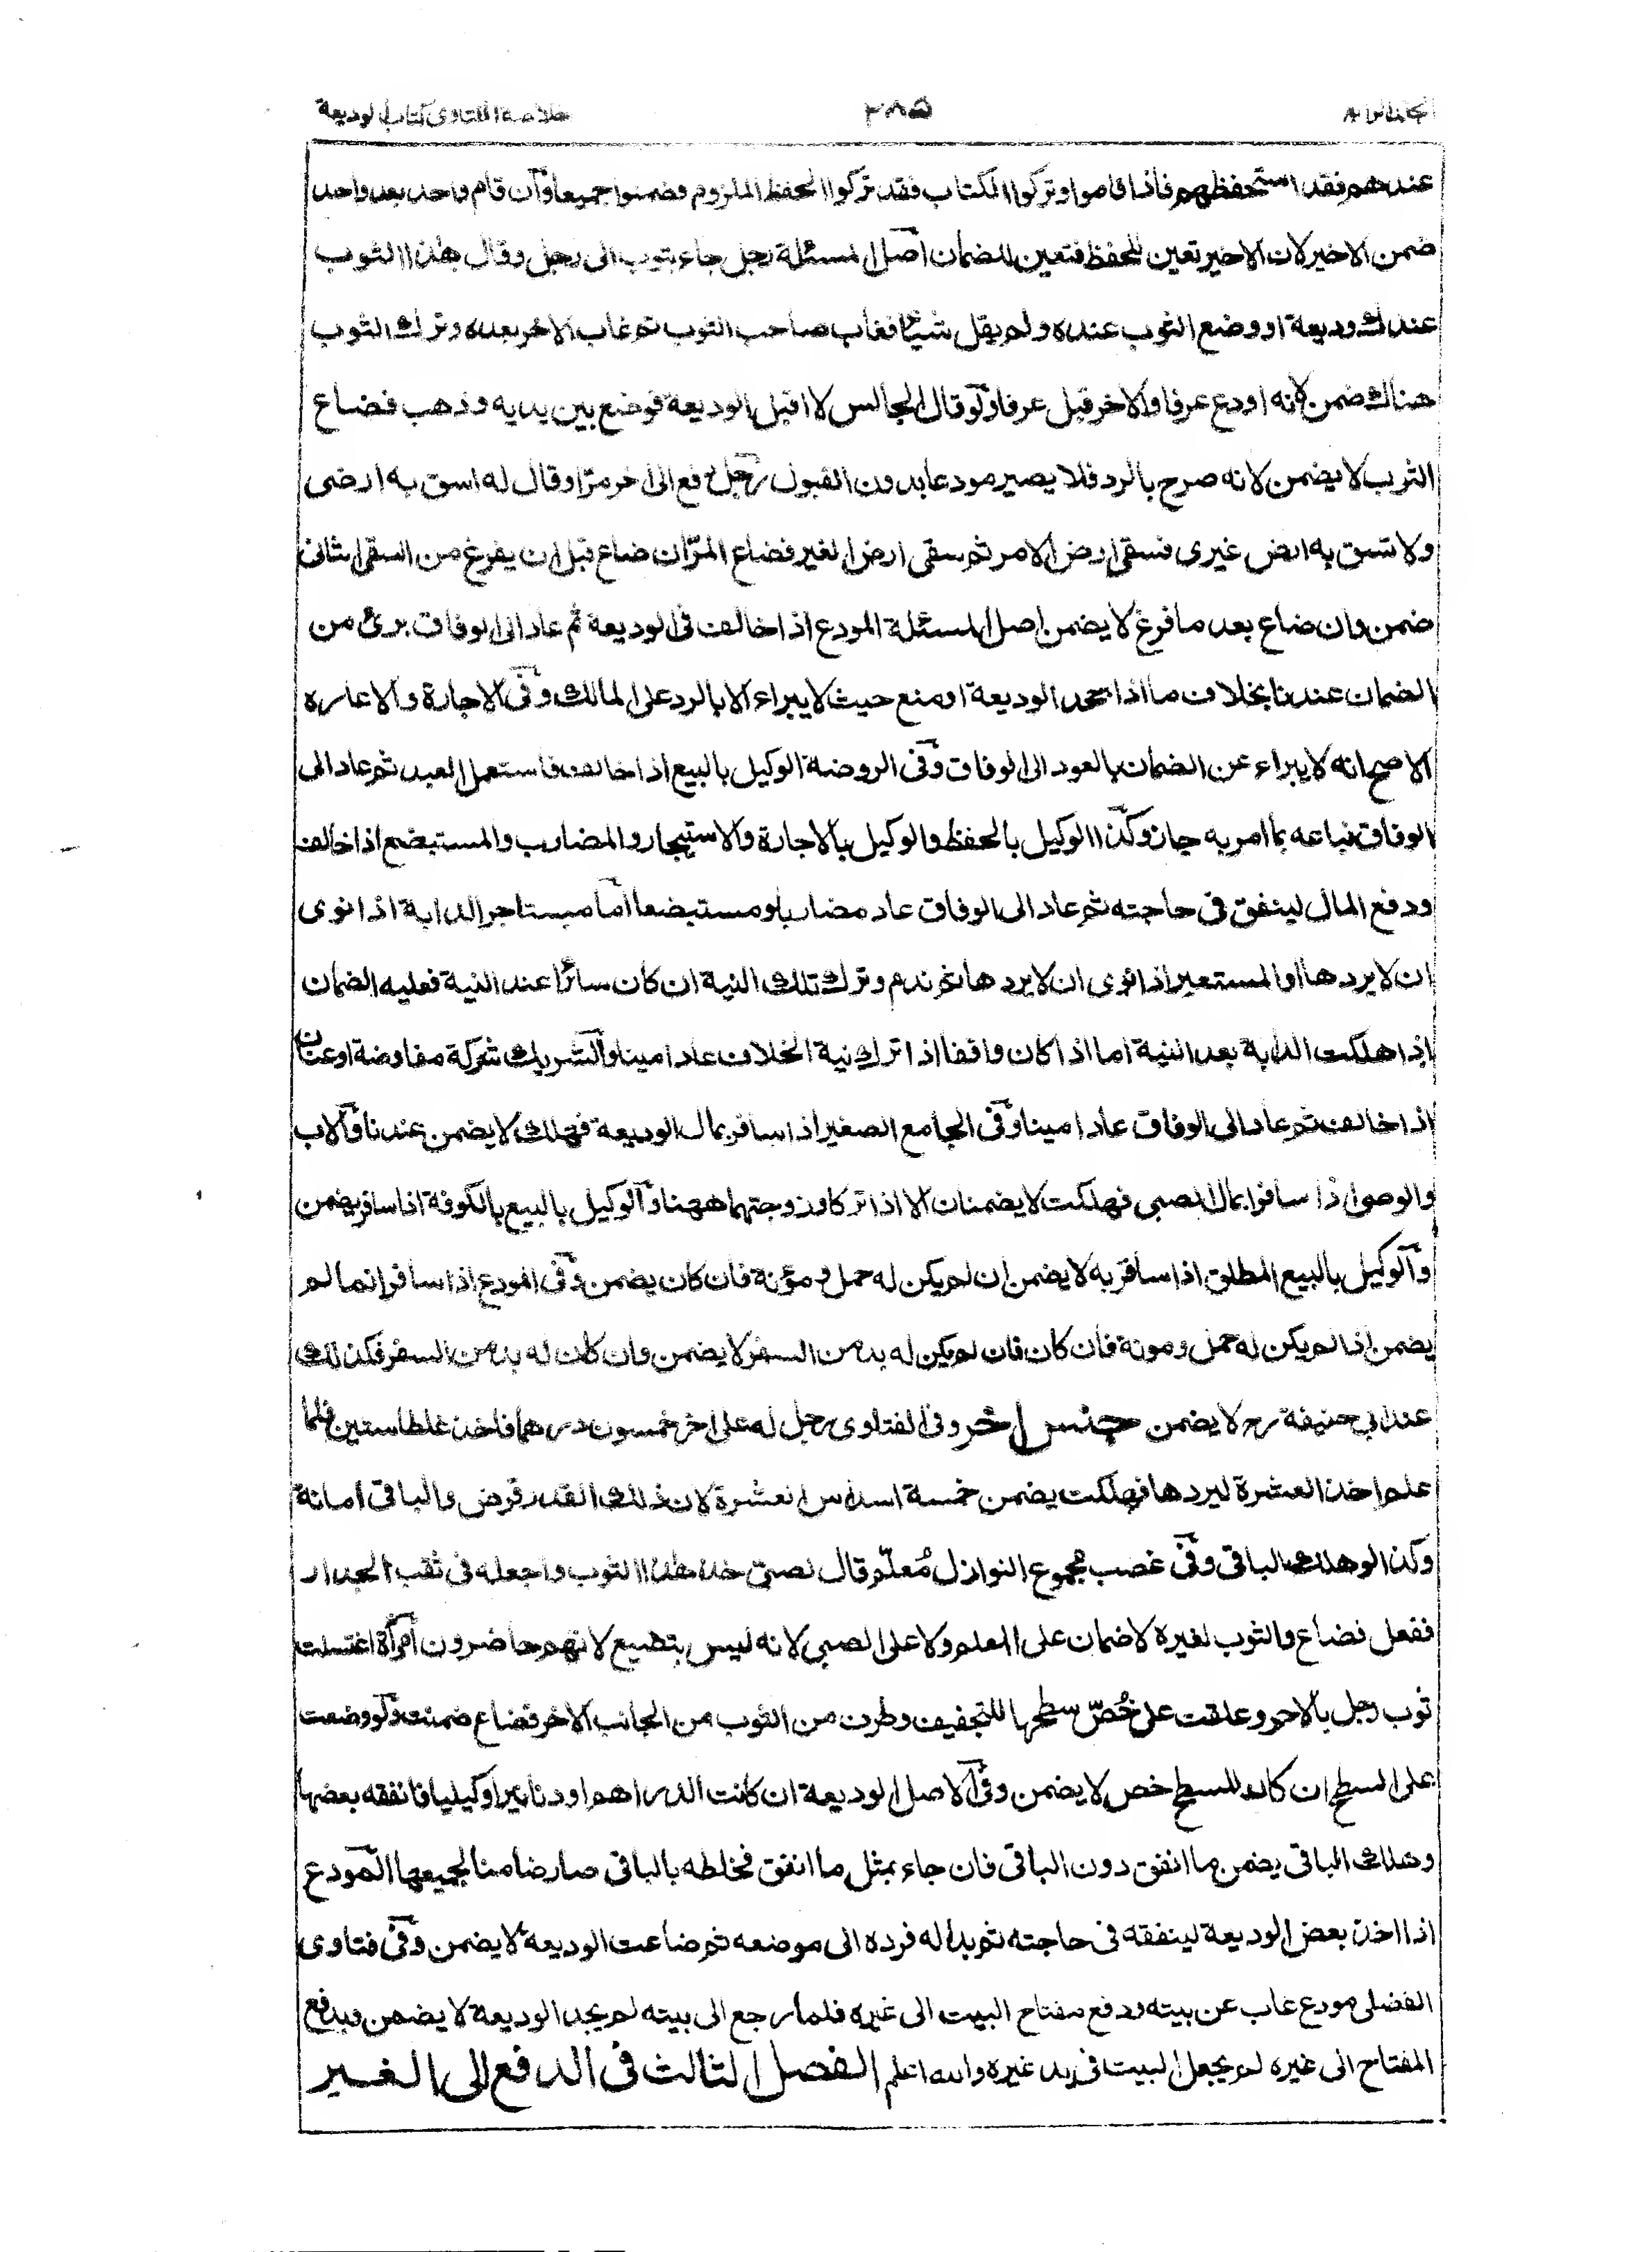 الجلد الرابع ٢٨٥ خلاصة الفتاوى كتاب الوديعة
عندهم فقد استحفظهم فاذا قاموا وتركوا الكتاب فقد تركوا الحفظ الملزوم فضمنوا جميعا وان قام واحد بعد واحد
ضمن الاخير لان الاخير تعين للحفظ فتعين للضمان اصل المسئلة رجل جاء بثوب الى رجل وقال هذا الثوب
عندك وديعة او وضع الثوب عنده ولم يقل شيئا فغاب صاحب الثوب ثم غاب الاخر بعده وترك الثوب
هنالك ضمن لانه اودع عرفا والاخر قبل عرفا ولو قال الجالس لا اقبل الوديعة فوضع بين يديه وذهب فضاع
الثوب لا يضمن لانه صرح بالرد فلا يصير مودعا بدون القبول رجل دفع الى اخر مرّا وقال له اسق به ارضى
ولا تسق به ارض غيرى فسقى ارض الامر ثم سقى ارض الغير فضاع المرّ ان ضاع قبل ان يفرغ من السقى الثانى
ضمن وان ضاع بعد ما فرغ لا يضمن اصل المسئلة المودع اذا خالف فى الوديعة ثم عاد الى الوفاق برئ من
الضمان عندنا بخلاف ما اذا جحد الوديعة او منع حيث لا يبراء الا بالرد على المالك وفى الاجارة والاعاره
الاصح انه لا يبراء عن الضمان بالعود الى الوفاق وفى الروضة الوكيل بالبيع اذا خالف فاستعمل العبد ثم عاد الى
الوفاق فباعه بما امر به جاز وكذا الوكيل بالحفظ والوكيل بالاجارة والاستيجار والمضارب والمستبضع اذا خالف
ودفع المال لينفق فى حاجته ثم عاد الى الوفاق عاد مضاربا ومستبضعا اما مستاجر الدابة اذا نوى
ان لا يردها او المستعير اذا نوى ان لا يردها ثم ندم وترك تلك النية ان كان سائرا عند النية فعليه الضمان
اذا هلكت الدابة بعد النية اما اذا كان واقفا اذا ترك نية الخلاف عاد امينا والشريك شركة مفاوضة او عنان
اذا خالف ثم عاد الى الوفاق عاد امينا وفى الجامع الصغير اذا سافر بمال الوديعة فهلك لا يضمن عندنا والاب
والوصى اذا سافرا بمال الصبى فهلكت لا يضمنان الا اذا تركا وزوجتهما ههنا والوكيل بالبيع بالكوفة اذا سافر يضمن
والوكيل بالبيع المطلق اذا سافر به لا يضمن ان لم يكن له حمل و مؤنة فان كان يضمن وفى المودع اذا سافر انما لم
يضمن اذا لم يكن له حمل ومونة فان كان فان لم يكن له بد من السفر لا يضمن وان كان له بد من السفر فكذلك
عند ابى حنيفة رح لا يضمن جنس اخر وفى الفتاوى رجل له على اخر خمسون درهما فاخذ غلطا ستين فلما
علم اخذ العشرة ليردها فهلكت يضمن خمسة اسداس العشرة لان ذلك القدر قرض والباقى امانة
وكذا لو هلك الباقى وفى غصب مجموع النوازل مُعلّم قال لصبى خذ هذا الثوب واجعله فى ثقب الجدار
ففعل فضاع والثوب لغيره لا ضمان على المعلم ولا على الصبى لانه ليس بتضييع لانهم حاضرون امرأة اغتسلت
ثوب رجل بالاجر وعلقت على خُصّ سطحها للتجفيف وطرف من الثوب من الجانب الاخر فضاع ضمنت ولو وضعت
على السطح ان كان للسطح خص لا يضمن وفى الاصل الوديعة ان كانت الدراهم او دنانيرا وكيليا فانفقه بعضها
وهلك الباقى يضمن ما انفق دون الباقى فان جاء بمثل ما انفق فخلطه بالباقى صار ضامنا لجميعها المودع
اذا اخذ بعض الوديعة لينفقه فى حاجته ثم بدا له فرده الى موضعه ثم ضاعت الوديعة لا يضمن وفى فتاوى
الفضلى مودع غاب عن بيته ودفع مفتاح البيت الى غيره فلما رجع الى بيته لم يجد الوديعة لا يضمن وبدفع
المفتاح الى غيره لم يجعل البيت فى يد غيره والله اعلم الفصل الثالث فى الدفع الى الغير